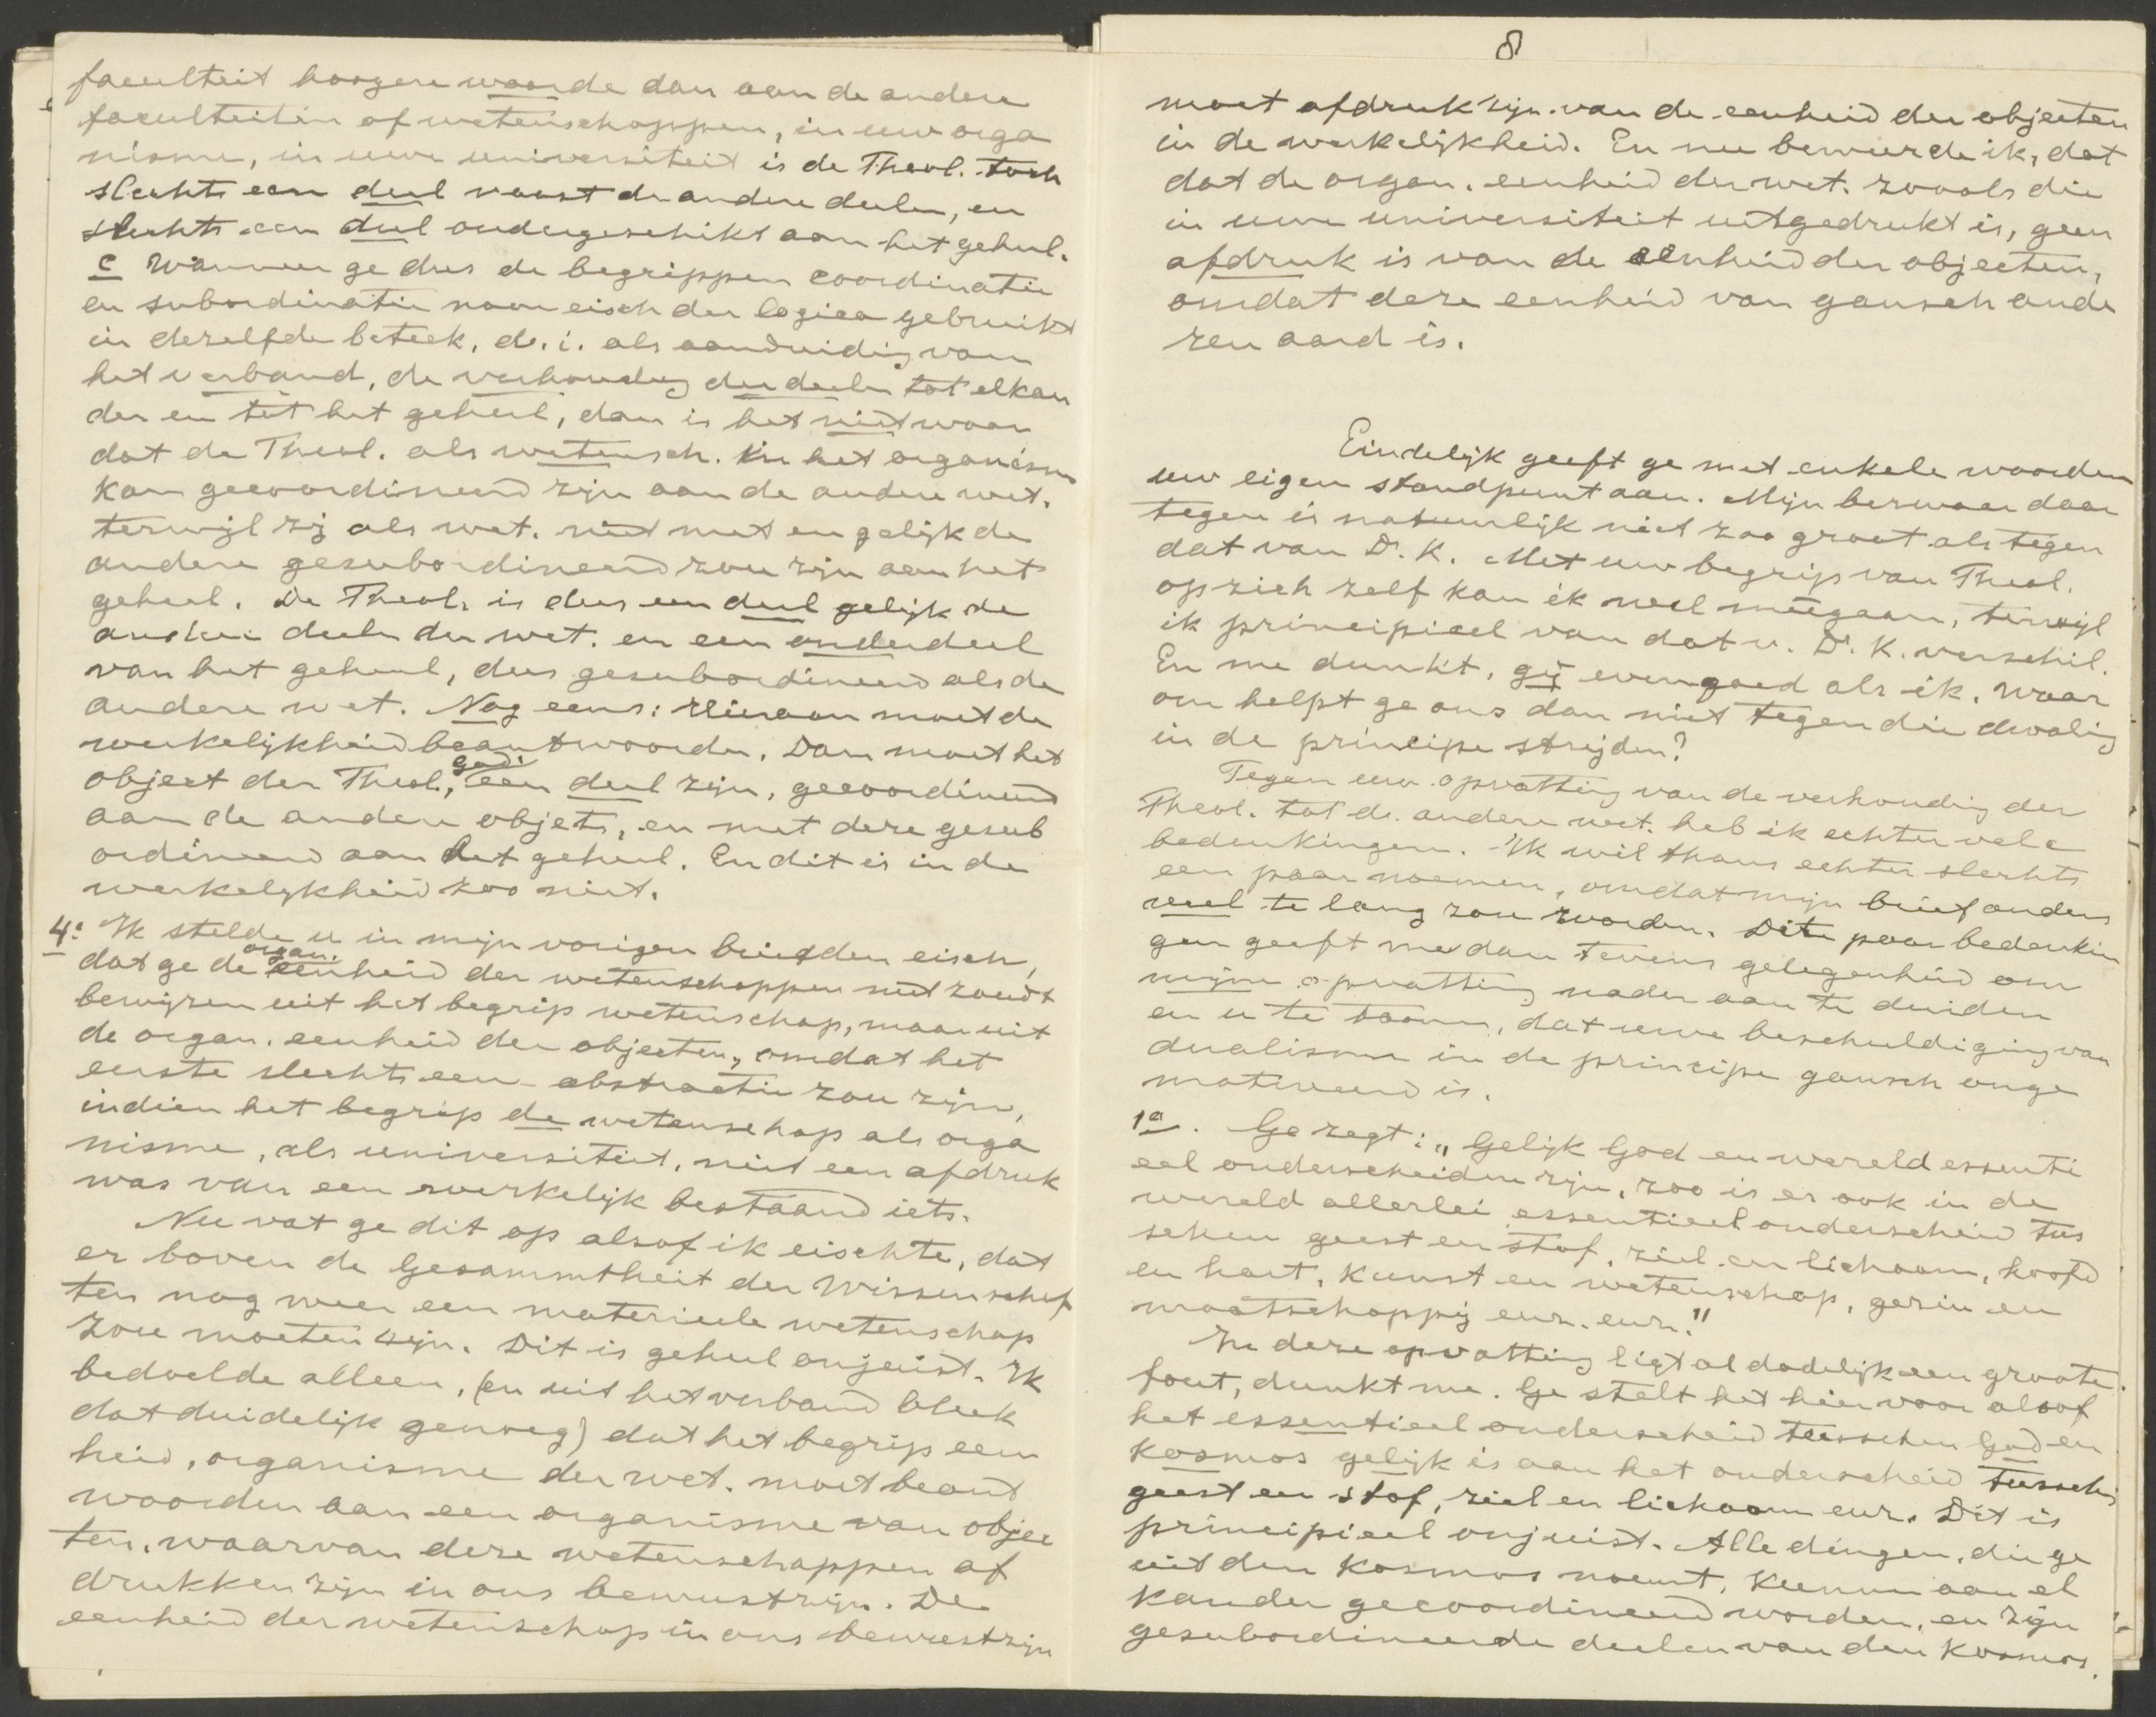 faculteit hoogere waarde dan aan de andere
faculteiten of wetenschappen, in uw orga
nisme, in uwe universiteit is de Theol. toch
slechts een deel naast de andere deelen, en
slechts een deel ondergeschikt aan het geheel.
c Wanneer ge dus de begrippen coordinatie
en subordinatie naar eisch der logica gebruikt
in dezelfde beteek. d. i. als aanduiding van
het verband, de verhouding der deelen tot elkan
der en tot het geheel, dan is het niet waar
dat de Theol. als wetensch. in het organisme
kan gecoordineerd zijn aan de andere wet.
terwijl zij als wet. niet met en gelijk de
andere gesubordineerd zou zijn aan het
geheel. De Theol. is dus een deel gelijk de
andere deelen der wet. en een onderdeel
van het geheel, dus gesubordineerd als de
andere wet. Nog eens: Hieraan moet de
werkelijkheid beantwoorden. Dan moet het
object der Theol., God: een deel zijn, gecoordineerd
aan de andere objets, en met deze gesub
ordineerd aan het geheel. En dit is in de
werkelijkheid zoo niet.
4o Ik stelde u in mijn vorigen brief den eisch,
dat ge de organ. eenheid der wetenschappen niet zoudt
bewijzen uit het begrip wetenschap, maar uit
de organ. eenheid der objecten, omdat het
eerste slechts een abstractie zou zijn,
indien het begrip de wetenschap als orga
nisme, als universiteit, niet een afdruk
was van een werkelijk bestaand iets.
Nu vat ge dit op alsof ik eischte, dat
er boven de Gesammtheit der Wissenschaf
ten nog weer een materieele wetenschap
zou moeten zijn. Dit is geheel onjuist. Ik
bedoelde alleen, (en uit het verband bleek
dat duidelijk genoeg) dat het begrip een
heid, organisme der wet. moet beant
woorden aan een organisme van objec
ten, waarvan deze wetenschappen af
drukken zijn in ons bewustzijn. De
eenheid der wetenschap in ons bewustzijn
8
moet afdruk zijn van de eenheid der objecten
in de werkelijkheid. En nu beweerde ik, dat
dat de organ. eenheid der wet. zooals die
in uwe universiteit uitgedrukt is, geen
afdruk is van de eenheid der objecten,
omdat deze eenheid van gansch ande
ren aard is.
Eindelijk geeft ge met enkele woorden
uw eigen standpunt aan. Mijn bezwaar daar
tegen is natuurlijk niet zoo groot als tegen
dat van Dr. K. Met uw begrip van Theol.
op zich zelf kan ik wel meegaan, terwijl
ik principieel van dat v. Dr. K. verschil.
En me dunkt, gij evengoed als ik. Waar
om helpt ge ons dan niet tegen die dwaling
in de principe strijden?
Tegen uw opvatting van de verhouding der
Theol. tot de andere wet. heb ik echter vele
bedenkingen. Ik wil thans echter slechts
een paar noemen, omdat mijn brief anders
veel te lang zou worden. Dit paar bedenkin
gen geeft me dan tevens gelegenheid om
mijne opvatting nader aan te duiden
en u te toonen, dat uwe beschuldiging van
dualisme in de principe gansch onge
motiveerd is.
1o. Ge zegt: "Gelijk God en wereld essenti
eel onderscheiden zijn, zoo is er ook in de
wereld allerlei essentieel onderscheid tus
schen geest en stof, ziel en lichaam, hoofd
en hart, kunst en wetenschap, gezin en
maatschappij enz. enz."
In deze opvatting ligt al dadelijk een groote
fout, dunkt me. Ge stelt het hier voor alsof
het essentieel onderscheid tusschen God en
kosmos gelijk is aan het onderscheid tusschen
geest en stof, ziel en lichaam enz. Dit is
principieel onjuist. Alle dingen, die ge
uit den kosmos noemt, kunnen aan el
kander gecoordineerd worden, en zijn
gesubordineerde deelen van den kosmos.